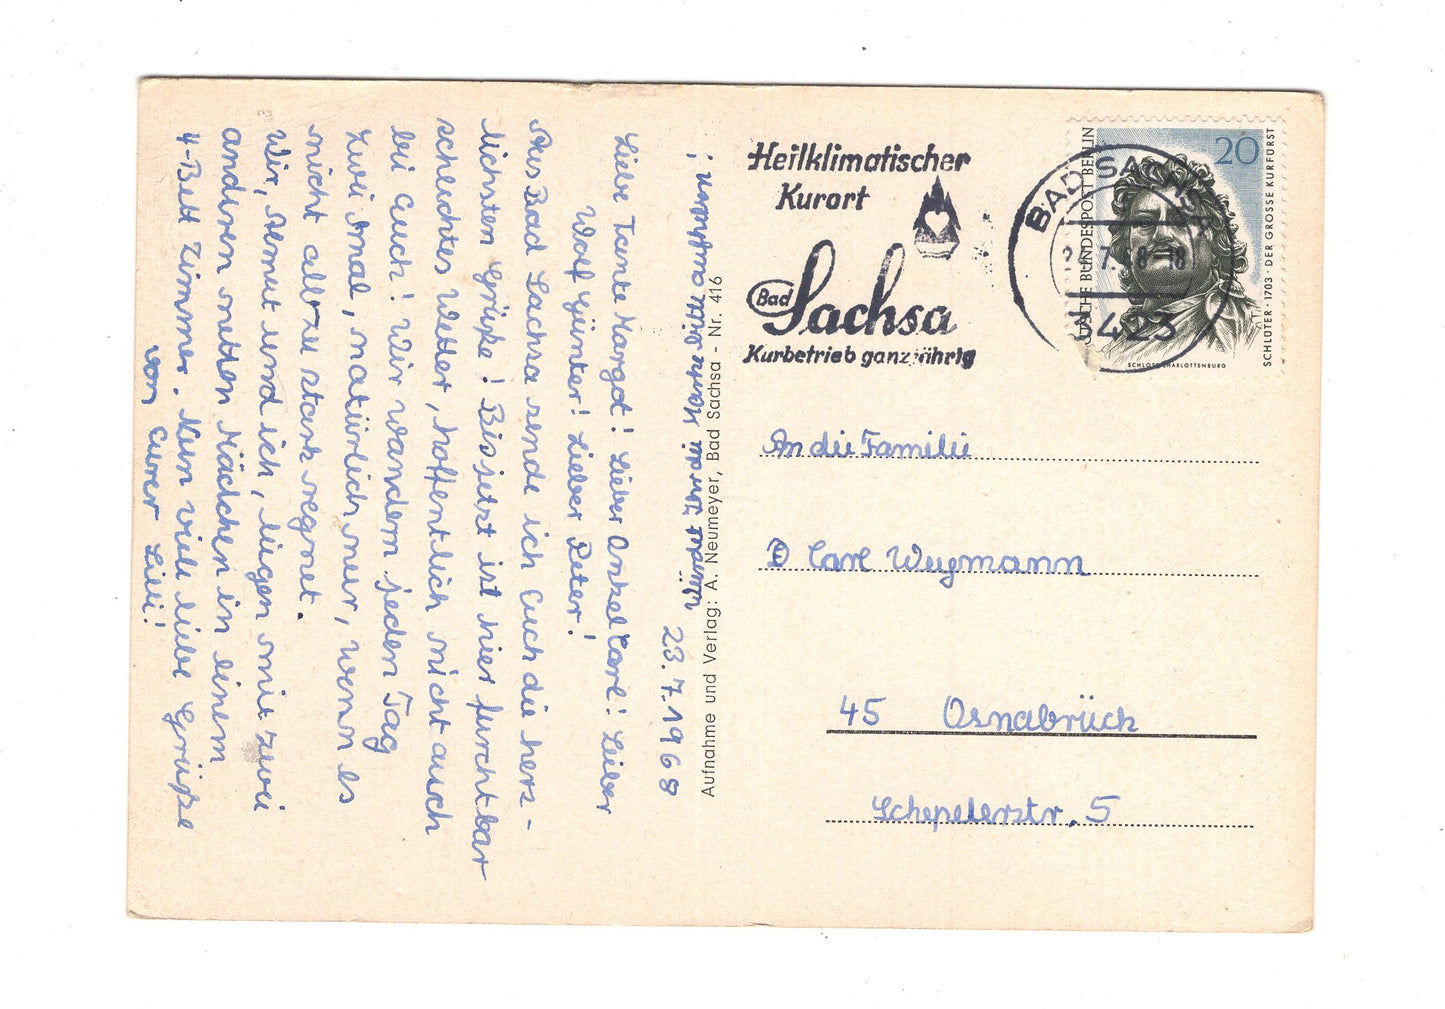 23.7.1968
Liebe Tante Margot! Lieber Onkel Carl! Lieber
Wolf Günter! Lieber Peter!
Aus Bad Sachsa sende ich Euch die herz-
lichsten Grüße! Bis jetzt ist hier furchtbar
schlechtes Wetter, hoffentlich nicht auch
bei Euch! Wir wandern jeden Tag
zwei mal, natürlich nur, wenn es
nicht allzu stark regnet.
Wir, Almut und ich, liegen mit zwei
anderen netten Mädchen in einem
4-Bett Zimmer. Nun viele liebe Grüße
von eurer Lili!
Würdet Ihr die Karte bitte aufheben!
Aufnahme und Verlag: A. Neumeyer, Bad Sachsa - Nr. 416
Heilklimatischer
Kurort
Bad Sachsa
Kurbetrieb ganzjährig
BAD SACHSA
24.7.68-18
3423
20
TSCHE BUNDESPOST BERLIN
SCHLÜTER · 1703 · DER GROSSE KURFÜRST
SCHLOSS CHARLOTTENBURG
An die Familie
Carl Weymann
45 Osnabrück
Schepelerstr. 5